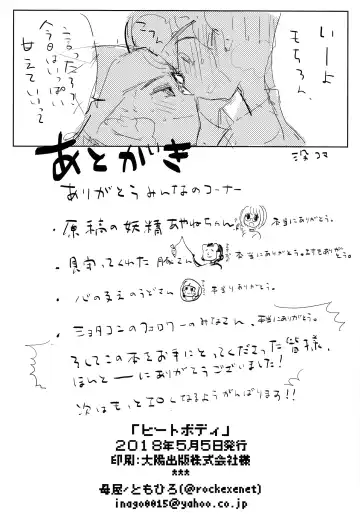 いーよ
もちろん。
言ったろ?
今日はいっぱい
甘えていいって
こつん
没コマ
あとがき
ありがとうみんなのコーナー
・原稿の妖精あやねちゃん 本当にありがとう。
・見守ってくれた豚さん 本当にありがとう。またもありがとう。
・心の支えのうどさん 本当にありがとう。
・ショタコンのフォロワーのみなさん、本当にありがとう。
そしてこの本をお手にとってくださった皆様、
ほんとーーにありがとうございました!
次はもっとエロくなるようがんばります!!
「ヒートボディ」
2018年5月5日発行
印刷:大陽出版株式会社様
***
母屋/ともひろ(@rockexenet)
inago0015@yahoo.co.jp